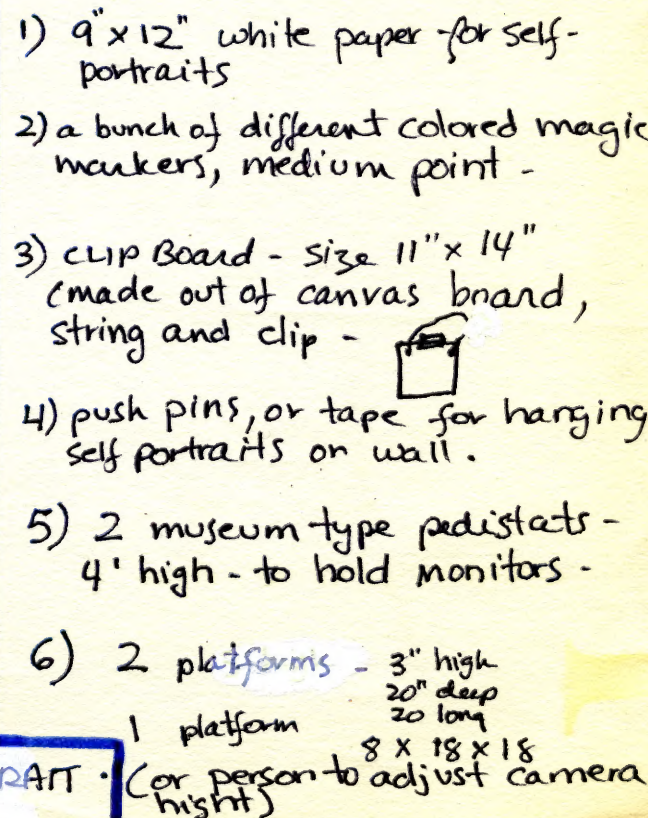 1) 9"x12" white paper for self-
portraits
2) a bunch of different colored magic
markers, medium point -
3) CLIP Board - size 11"x 14"
(made out of canvas board,
string and clip -
4) push pins, or tape for hanging
self portraits on wall.
5) 2 museum type pedistats -
4' high - to hold monitors -
6) 2 platforms - 3" high
20" deep
1 platform 20 long
8 x 18 x 18
RAIT · (or person to adjust camera
hight)